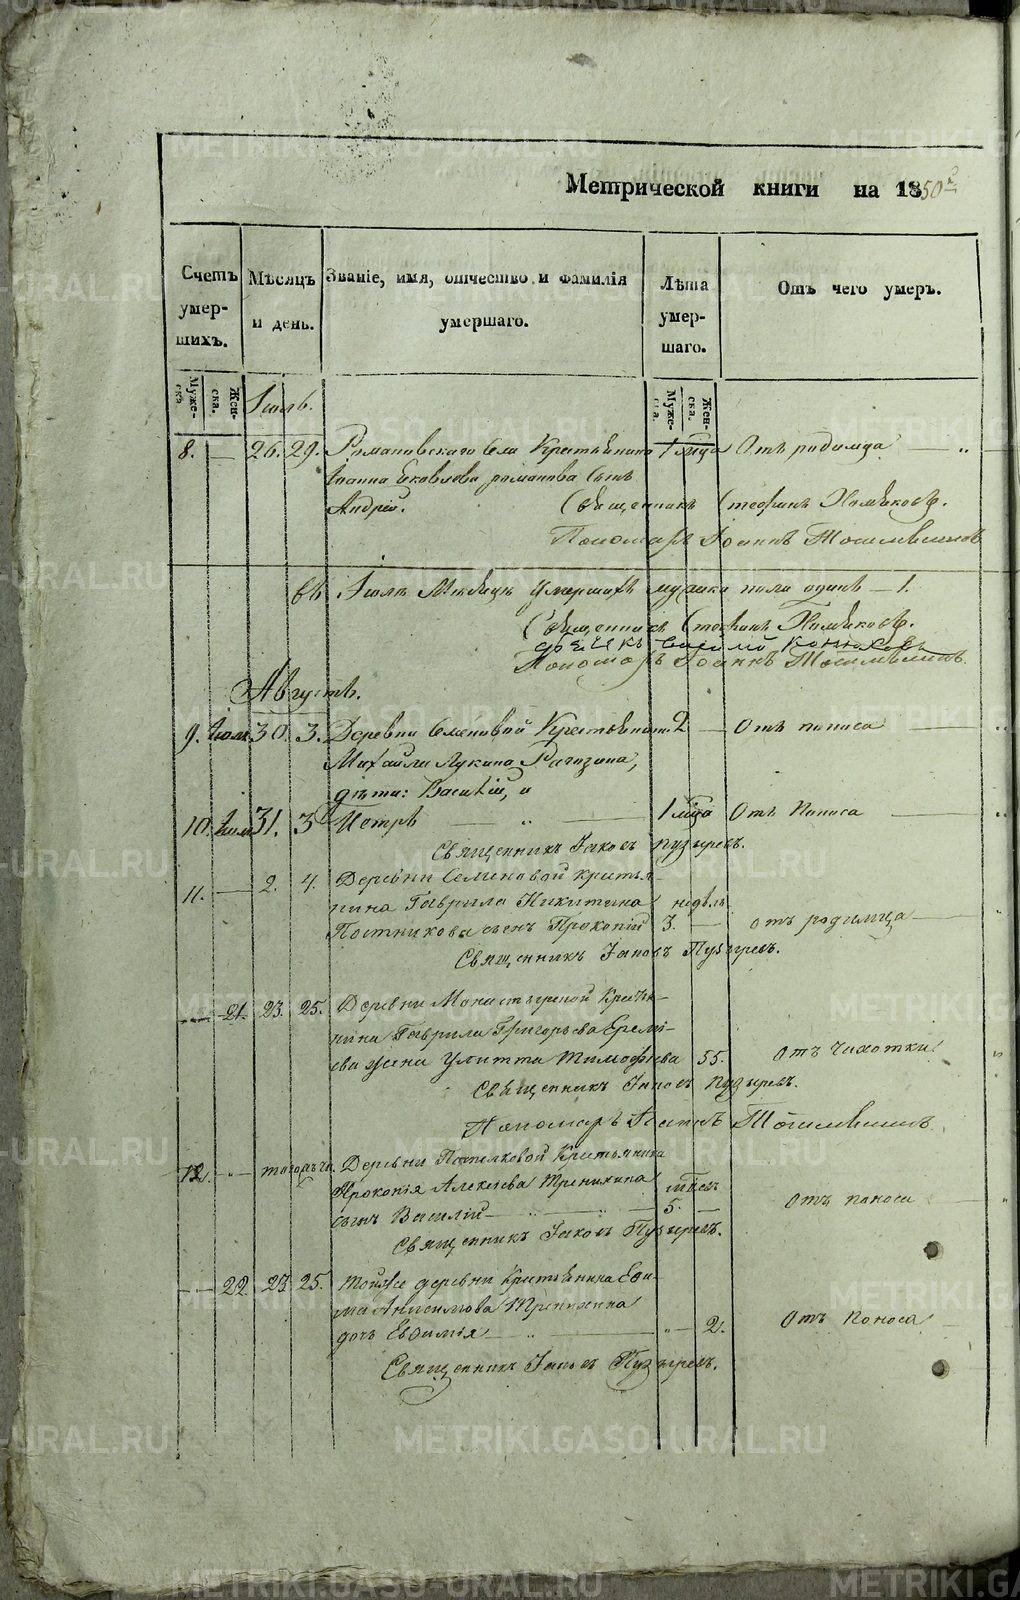 Метрической книги на 1850 г.
Счетъ умер-шихъ.
Мѣсяцъ и день.
Званіе, имя, отчество и фамилія умершаго.
Лѣта умер-шаго.
Отъ чего умеръ.
Муже-ска.
Жен-ска.
Муже-ска.
Жен-ска.
Іюль.
8. — 26. 29. Романовскаго села Крестьянина 1 мца Отъ родимца — „ —
Іоанна Яковлева романова сынъ
Андрей. Священникъ Стефанъ Хомяковъ.
Пономарь Іоаннъ
Въ Іюлѣ Мѣсяцѣ умершихъ мужска пола одинъ — 1.
Священникъ Стефанъ Хомяковъ.
Пономарь Іоаннъ
Августъ.
9. Іюля 30. 3. Деревни Семеновой Крестьянина 2 — Отъ поноса
Михаила Лукина
дѣти: Василій, и
10. Іюля 31. 3 Петръ — „ — 1 мца Отъ Поноса
Священникъ Іаковъ Пузыревъ.
11. — 2. 4. Деревни Семеновой кресть-
нина Гаврила Никитина недѣль
Постникова сынъ Прокопій 3. — отъ родимца
Священникъ Іаковъ Пузыревъ.
— 21. 23. 25. Деревни Монастыр Крестья-
нина Гаврила Григорьева Ереми-
ева жена Улитта Тимофеева 55. отъ чахотки
Священникъ Іаковъ Пузыревъ.
Пономарь
12. — Деревни Крестьянина
Прокопія Алексѣева Тренихина мѣсяц
сынъ Василій — „ — „ — 5. — отъ поноса
Священникъ Іаковъ Пузыревъ.
— 22. 23 25. Тойже деревни Крестьянина Ефи-
ма Анисимова Тренихина
дочь Евфимія — „ — „ — 2. отъ поноса
Священникъ Іаковъ Пузыревъ.
METRIKI.GASO-URAL.RU